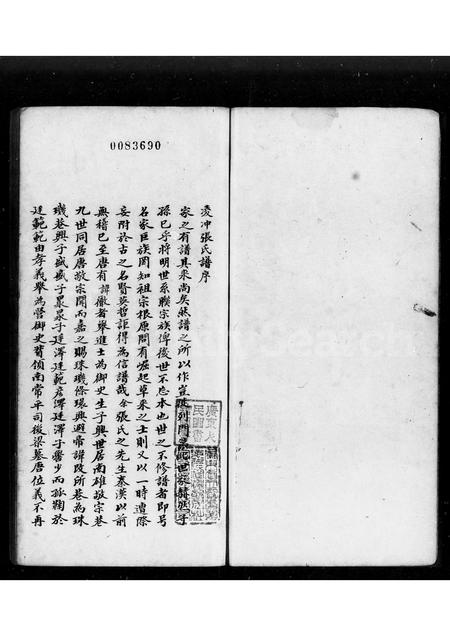 0083690
凌冲張氏譜序
家之有譜其來尚矣然譜之所以作豈
孫已乎將明世系聯宗族俾後世不忘本也世之不修譜者即号
名家巨族罔知祖宗根原間有崛起草來之士則又以一時遭際
妄附於古之名賢英哲詎得為信譜哉余張氏之先生秦漢以前
無稽已至唐有諱徹者舉進士為御史生子興世居南雄敬宗巷
九世同居唐敬宗聞而嘉之賜珠璣條環興避帝諱改所巷為珠
璣巷興子盛盛子果果子廷澤廷範君澤廷澤子少而孤鞠於
廷範範由孝義舉為營御史質領南常平司後梁墓唐位義不再